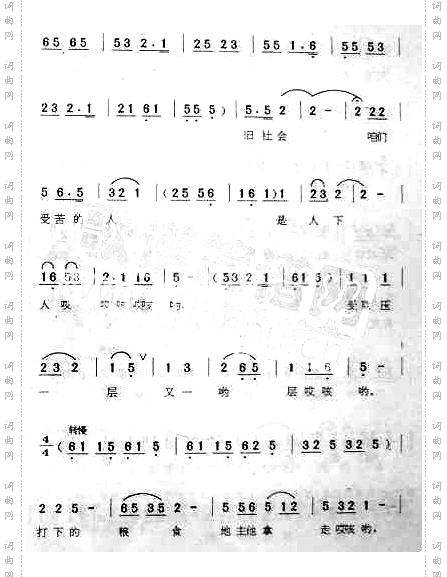 65 65 | 53 2·1 | 25 23 | 55 1·6 | 55 53 |
23 2·1 | 21 61 | 55 5 ) | 5·5 2 | 2 - | 2 22 |
旧 社 会 咱们
5 6·5 | 3 2 1 | ( 25 56 | 16 1 ) 1 | 23 2 | 2 - |
受 苦 的 人 是 人 下
16 53 | 2·1 16 | 5 - | ( 53 21 | 61 5 ) | 1 1 1 |
人 哎 哎 哎 哟
2 3 2 | 1 5 | 1 3 | 2 65 | 1 1·6 | 5 - |
一 层 又 一 哟 层 哎 咳 哟。
转慢
4/4 ( 61 15 61 5 | 61 15 625 | 325 325 ) |
2 2 5 - | 65 35 2 - | 5 56 5 12 | 5 32 1 - |
打 下 的 粮 食 地 主 他 拿 走 哎 咳 哟,
词曲网